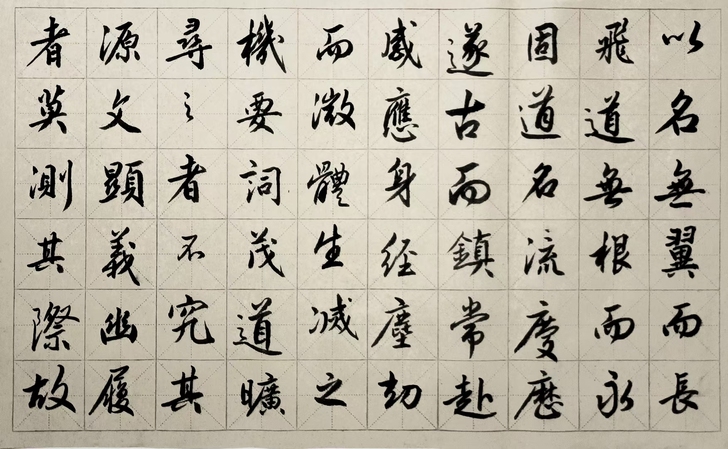 以名無翼而長
飛道無根而永
固道名流慶歷
遂古而鎮常赴
感應身經塵劫
而微體生滅之
機要詞茂道曠
尋之者不究其
源文顯義幽履
者莫測其際故